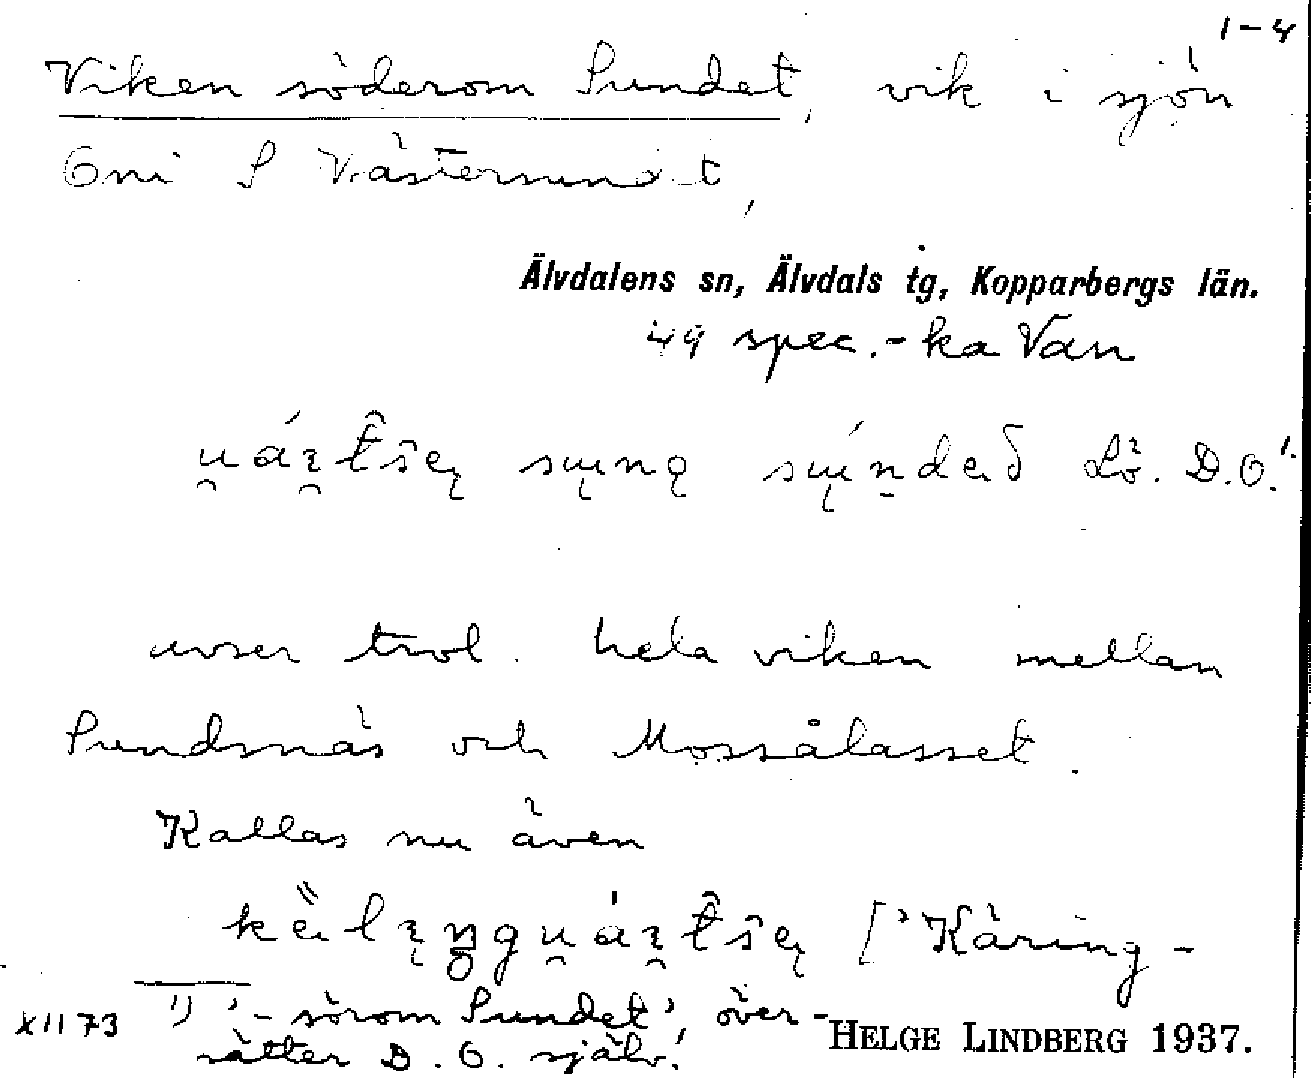 1-4
Viken söderom Sundet, vik i sjön
Oni S Västersundet,
Älvdalens sn, Älvdals tg, Kopparbergs län.
49 spec.-ka Van
Lö. D.O.¹
avser trol. hela viken mellan
Sundsnäs och Mossålasset.
Kallas nu även
['Käring-
1) '- sörom Sundet', över-
sätter D.O. själv.
XII 73
HELGE LINDBERG 1937.